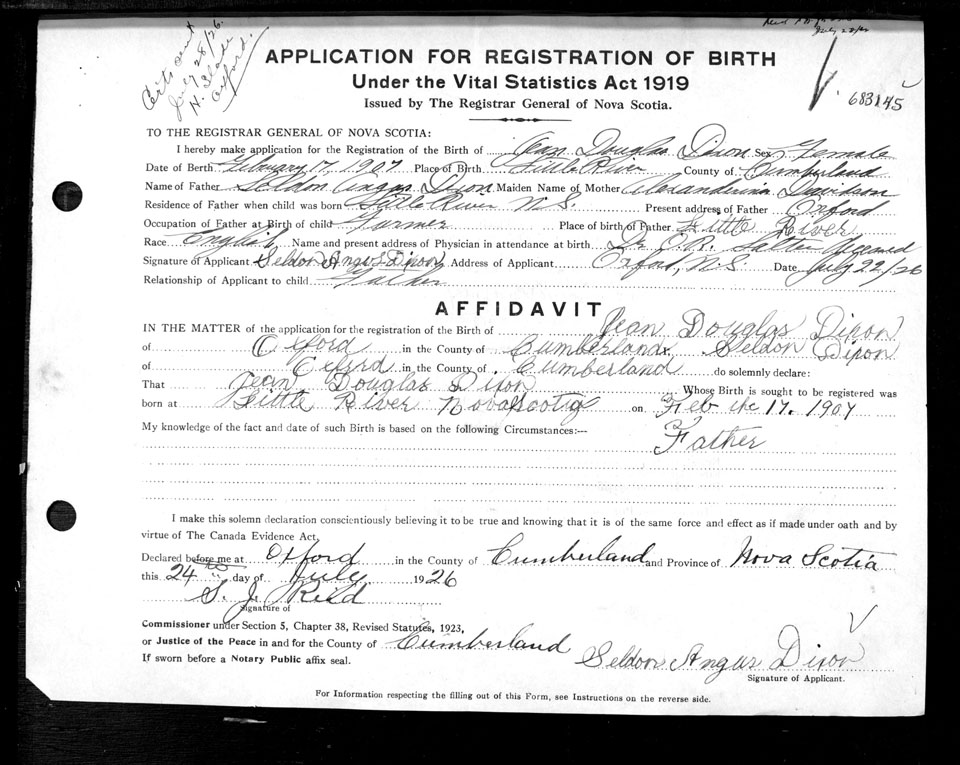 Certs sent
July 28/26
H. Slade
Oxford.
July 22/26
683145
APPLICATION FOR REGISTRATION OF BIRTH
Under the Vital Statistics Act 1919
Issued by The Registrar General of Nova Scotia.
TO THE REGISTRAR GENERAL OF NOVA SCOTIA:
I hereby make application for the Registration of the Birth of Jean Douglas Dixon Sex Female
Date of Berth February 17, 1907 Place of Birth Little River County of Cumberland
Name of Father Seldon Angus Dixon Maiden Name of Mother Alexanderina Davidson
Residence of Father when child was born Little River N.S. Present address of Father Oxford
Occupation of Father at Birth of child Farmer Place of birth of Father Little River
Race English Name and present address of Physician in attendance at birth Dr C.R. Salter
Signature of Applicant Seldon Angus Dixon Address of Applicant Oxford, N.S Date July 22/26
Relationship of Applicant to child Father
AFFIDAVIT
IN THE MATTER of the application for the registration of the Birth of Jean Douglas Dixon
of Oxford in the County of Cumberland Seldon Dixon
of Oxford in the County of Cumberland do solemnly declare:
That Jean Douglas Dixon Whose Birth is sought to be registered was
born at Little River Nova Scotia on Feb the 17. 1907
My knowledge of the fact and date of such Birth is based on the following Circumstances:—
Father
I make this solemn declaration conscientiously believing it to be true and knowing that it is of the same force and effect as if made under oath and by
virtue of The Canada Evidence Act,
Declared before me at Oxford in the County of Cumberland and Province of Nova Scotia
this 24 day of July 1926
S. J. Reid
Signature of
Commissioner under Section 5, Chapter 38, Revised Statutes, 1923,
or Justice of the Peace in and for the County of Cumberland
If sworn before a Notary Public affix seal.
Seldon Angus Dixon
Signature of Applicant.
For Information respecting the filling out of this Form, see Instructions on the reverse side.